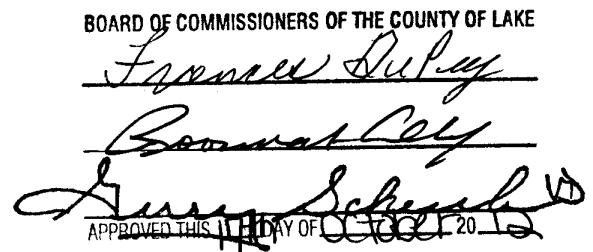 BOARD OF COMMISSIONERS OF THE COUNTY OF LAKE
Frances DuPey
Gerry Scheub
APPROVED THIS 17TH DAY OF OCTOBER 20 12